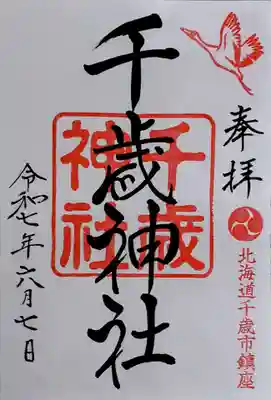 奉拝
北海道千歳市鎮座
千歳神社
千歳
神社
令和七年六月七日